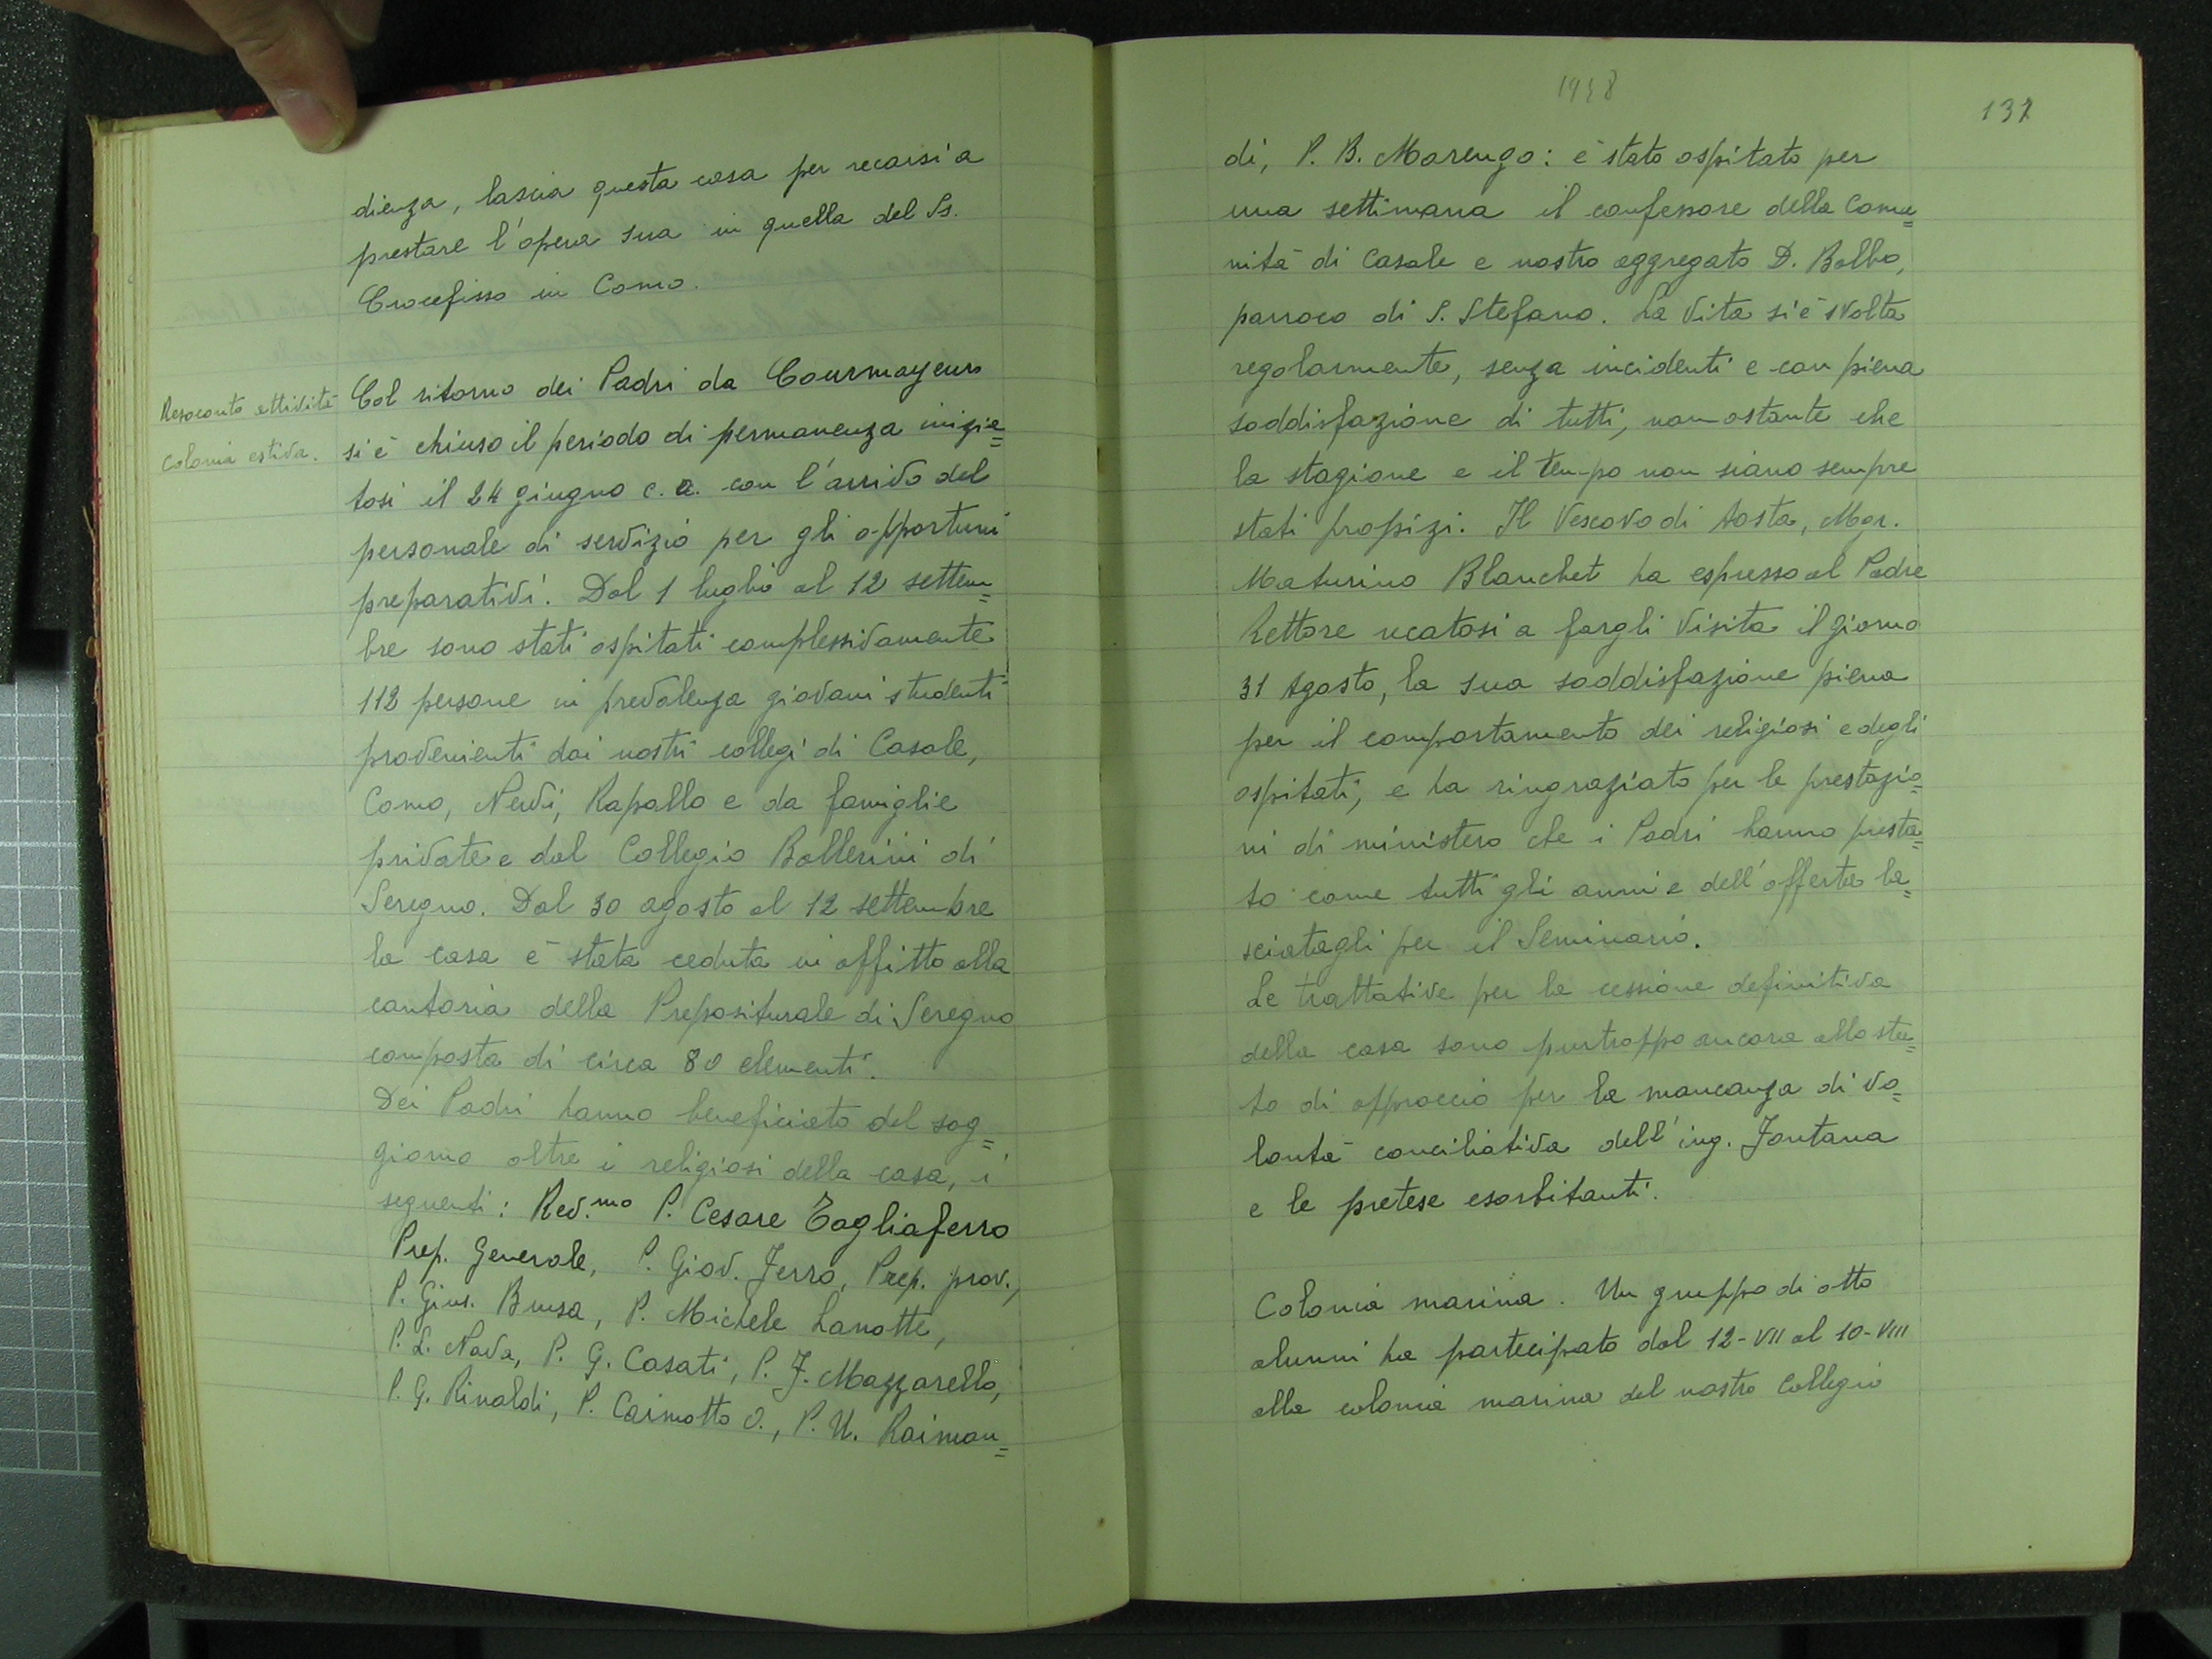 dienza, lascia questa casa per recarsi a
prestare l'opera sua in quella del Ss.
Crocefisso in Como.
Resoconto attività
colonia estiva.
Col ritorno dei Padri da Courmayeur
si è chiuso il periodo di permanenza inizia=
tosi il 24 giugno c. a. con l'arrivo del
personale di servizio per gli opportuni
preparativi. Dal 1 luglio al 12 settem=
bre sono stati ospitati complessivamente
112 persone in prevalenza giovani studenti
provenienti dai nostri collegi di Casale,
Como, Nervi, Rapallo e da famiglie
private e dal Collegio Ballerini di
Seregno. Dal 30 agosto al 12 settembre
la casa è stata ceduta in affitto alla
cantoria della Prepositurale di Seregno
composta di circa 80 elementi.
Dei Padri hanno beneficiato del sog=
giorno oltre i religiosi della casa, i
seguenti: Rev.mo P. Cesare Tagliaferro
Prep. Generale, P. Giov. Ferro, Prep. prov.,
P. Gius. Brusa, P. Michele Lanotte,
P. L. Nava, P. G. Casati, P. F. Mazzarello,
P. G. Rinaldi, P. Caimotto O., P. U. Raimon=
1948
137
di, P. B. Marengo: è stato ospitato per
una settimana il confessore della Comu=
nità di Casale e nostro aggregato D. Balbo,
parroco di S. Stefano. La vita si è svolta
regolarmente, senza incidenti e con piena
soddisfazione di tutti, nonostante che
la stagione e il tempo non siano sempre
stati propizi. Il Vescovo di Aosta, Mgr.
Maturino Blanchet ha espresso al Padre
Rettore recatosi a fargli visita il giorno
31 Agosto, la sua soddisfazione piena
per il comportamento dei religiosi e degli
ospitati, e ha ringraziato per le prestazio=
ni di ministero che i Padri hanno presta=
to come tutti gli anni e dell'offerta la=
sciatagli per il Seminario.
Le trattative per la cessione definitiva
della casa sono purtroppo ancora allo sta=
to di approccio per la mancanza di vo=
lontà conciliativa dell'ing. Fontana
e le pretese esorbitanti.
Colonia marina. Un gruppo di otto
alunni ha partecipato dal 12-VII al 10-VIII
alla colonia marina del nostro Collegio